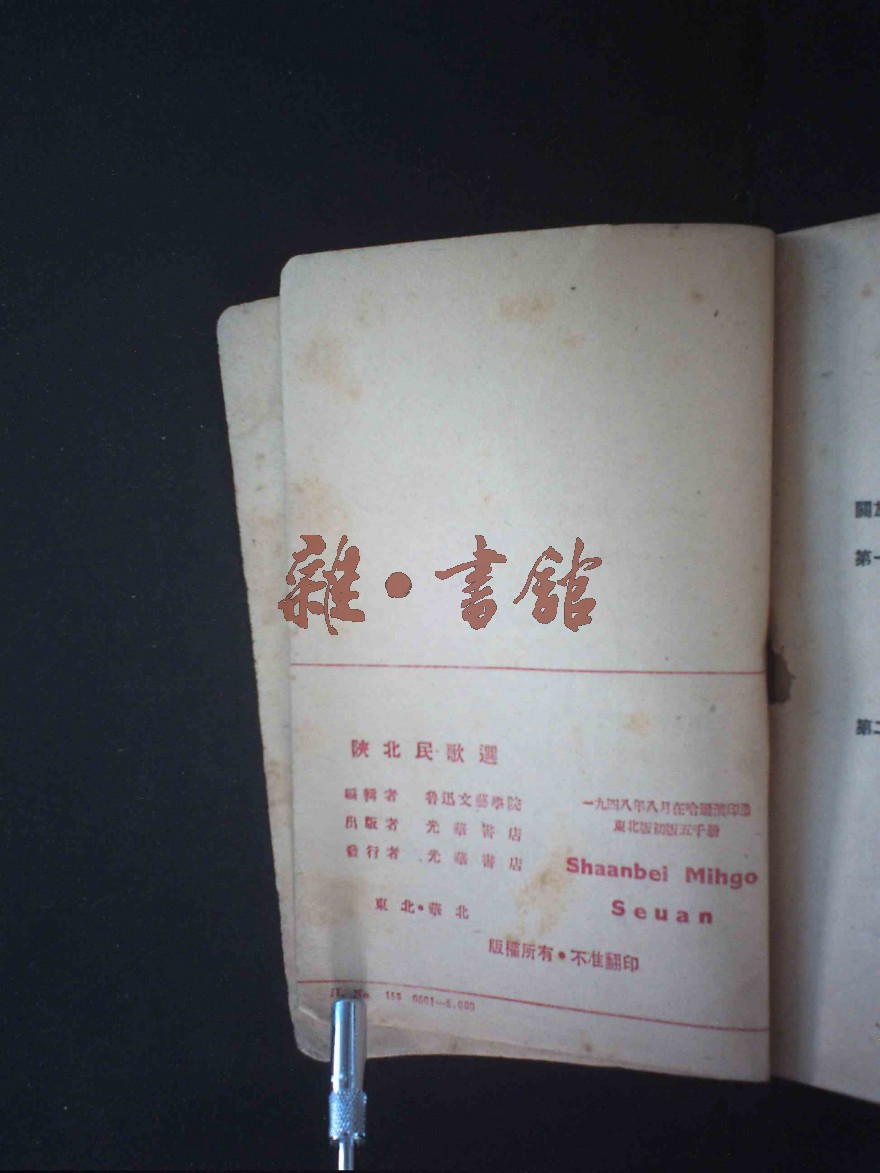 雜·書館
陝北民歌選
編輯者 魯迅文藝學院
出版者 光華書店
發行者 光華書店
東北·華北
一九四八年八月在哈爾濱印造
東北版初版五千册
Shaanbei Mihgo
Seuan
版權所有·不准翻印
No 155 0001—5.000
第一
第二